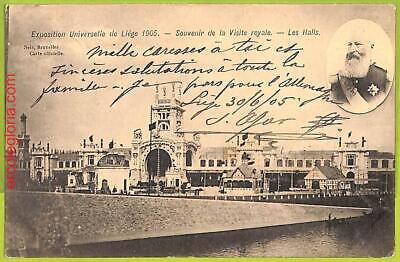 Exposition Universelle de Liége 1905. — Souvenir de la Visite royale. — Les Halls.
Nels, Bruxelles
Carte officielle.
Mille caresses à toi et
sincères salutations à toute la
famille. Je pars pour l'Allemagne
Lié 30/6/05
J.
oldthingloria.com